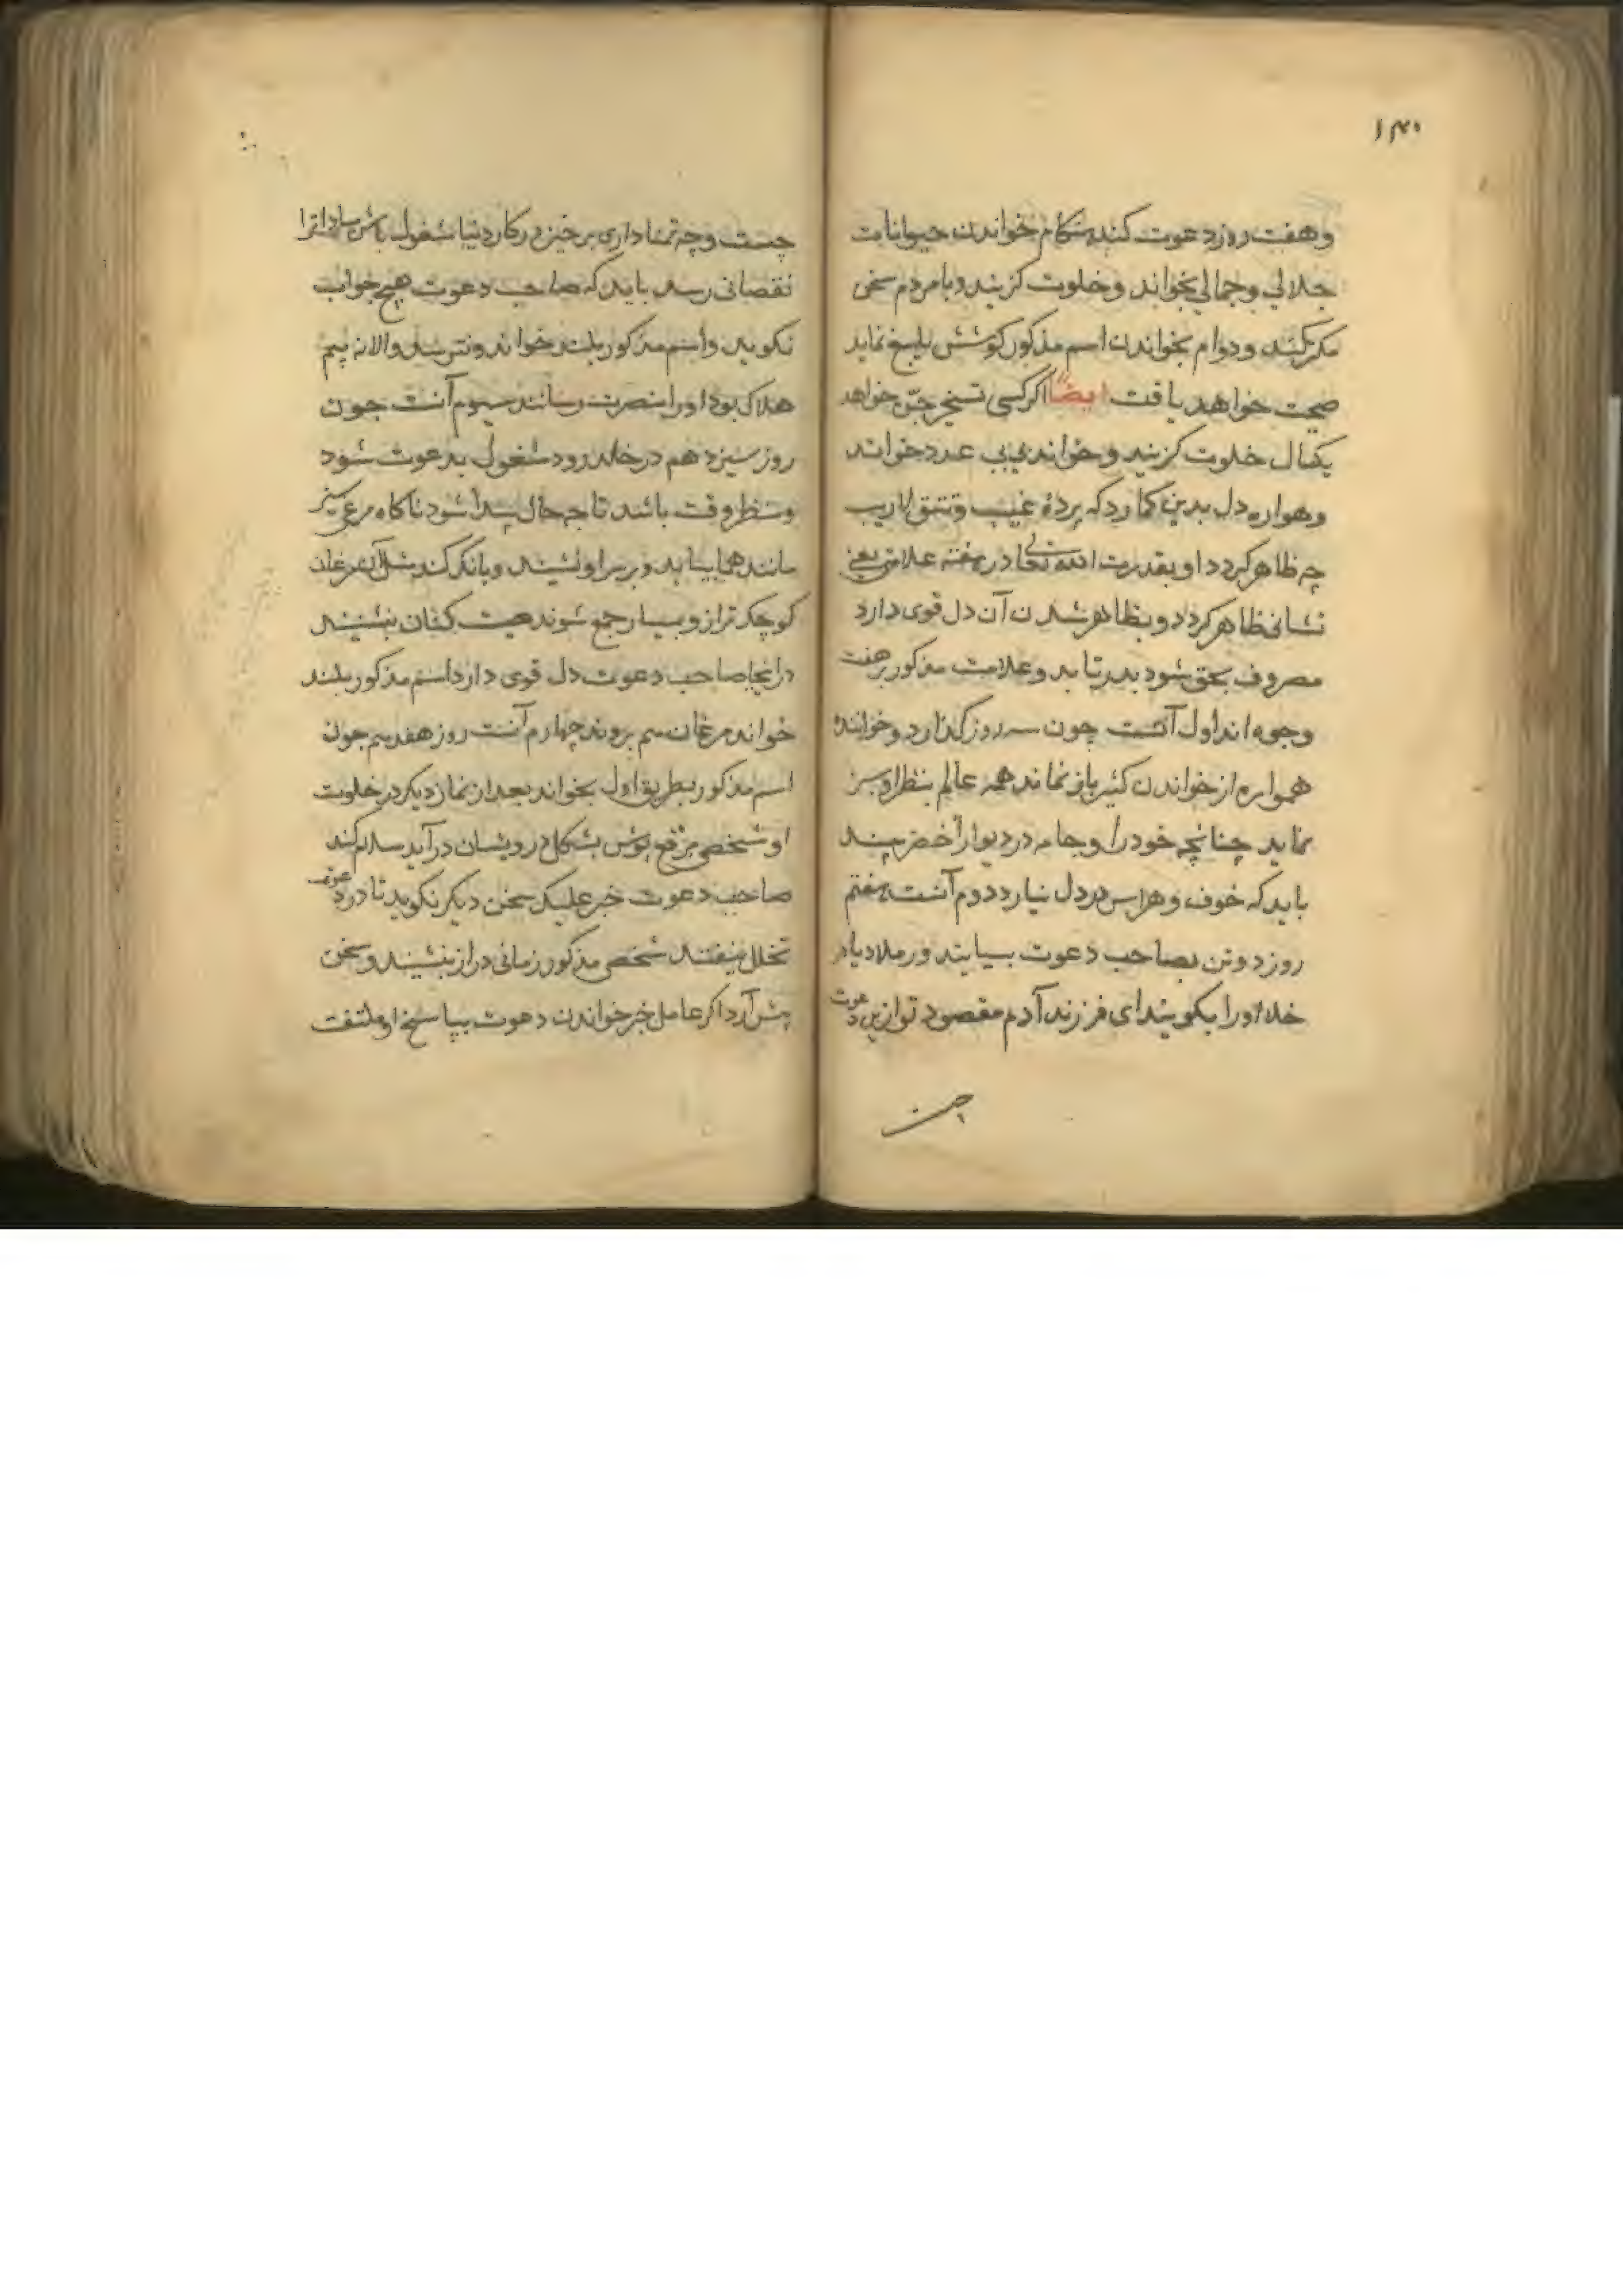 ۱۳۰
وهفت روز دعوت کند هنکام خواندن حیوانات
جلالی وجمالی بخواند وخلوت کزیند وبا مردم سخن
مکر نکند ودوام بخواندن اسم مذکور کوشش بلیغ نماید
صحت خواهد یافت ایضاً اکر کسی تسخیر جن خواهد
یکسال خلوت کزیند وخواند بی عدد خواند
وهواره دل بدین کمارد که پردهٔ غیب وتتق لاریب
چه ظاهر کردد او بقدرت الله تعالی در هفته علامتی یعنی
نشانی ظاهر کردد وبظاهر شدن آن دل قوی دارد
مصروف بحق شود بدرتابد وعلامت مذکور بر هفت
وجوه اند اول آنست چون سه روز کذارد وخواننده
همواره از خواندن کثیر باز نماند همه عالم بنظر او سبز
نماید چنانچه خود را وجامه در دیوار اخضر بیند
باید که خوف وهراس در دل نیارد دوم آنست هفتم
روز دو تن بصاحب دعوت بیایند ودر ملا دیا در
خلا اورا بکویند ای فرزند آدم مقصود تو ازین دعوت
چست
چست وچه تمنا داری برخیز در کار دنیا مشغول باش مبادا ترا
نقصانی رسد باید که صاحب دعوت هیچ جواب
نکوید واسم مذکور بلند خواند ونترسد والا نه بیم
هلاک بود اورا بنصرت رسانند سیوم آنست چون
روز سیزدهم در خانه رود مشغول بدعوت شود
ومنتظر وقت باشد تا چه حال پیدا شود ناکاه مرغ سبز
مانند هما بیاید وبر سر او نشیند وبانک کند مثل آن مرغان
کوچک تر ازو بسیار جمع شوند هیبت کنان بنشینند
در اینجا صاحب دعوت دل قوی دارد اسم مذکور بلند
خواند مرغان هم بروند چهارم آنست روز هفدهم چون
اسم مذکور بطریق اول بخواند بعد از نماز دیکر در خلوت
او شخصی مرقع پوش بشکل درویشان درآید سلام کند
صاحب دعوت جز علیک سخن دیکر نکوید تا در دعوت
تخلل نیفتد شخص مذکور زمانی دراز بنشیند وسخن
پیش آرد اکر عامل جز خواندن دعوت بپاسخ او ملتفت